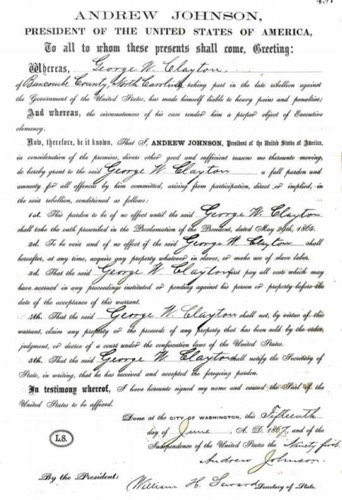 ANDREW JOHNSON,
PRESIDENT OF THE UNITED STATES OF AMERICA,
To all to whom these presents shall come, Greeting:
Whereas, George W. Clayton,
of Buncombe County, North Carolina, taking part in the late rebellion against
the Government of the United States, has made himself liable to heavy pains and penalties;
And whereas, the circumstances of his case render him a proper object of Executive
clemency.
Now, therefore, be it known, That I, ANDREW JOHNSON, President of the United States of America,
in consideration of the premises, divers other good and sufficient reasons me thereunto moving,
do hereby grant to the said George W. Clayton a full pardon and
amnesty for all offences by him committed, arising from participation, direct or implied, in
the said rebellion, conditioned as follows:
1st. This pardon to be of no effect until the said George W. Clayton
shall take the oath prescribed in the Proclamation of the President, dated May 29th, 1865.
2d. To be void and of no effect if the said George W. Clayton shall
hereafter, at any time, acquire any property whatever in slaves, or make use of slave labor.
3d. That the said George W. Clayton first pay all costs which may
have accrued in any proceedings instituted or pending against his person or property before
the date of the acceptance of this warrant.
4th. That the said George W. Clayton shall not, by virtue of this
warrant, claim any property or the proceeds of any property that has been sold by the order,
judgment, or decree of a court under the confiscation laws of the United States.
5th. That the said George W. Clayton shall notify the Secretary of
State, in writing, that he has received and accepted the foregoing pardon.
In testimony whereof, I have hereunto signed my name and caused the Seal of the
United States to be affixed.
Done at the CITY OF WASHINGTON, this Fifteenth
day of June, A. D. 1867, and of the
Independence of the United States the Ninety first
Andrew Johnson
L.S.
By the President:
William H. Seward Secretary of State.